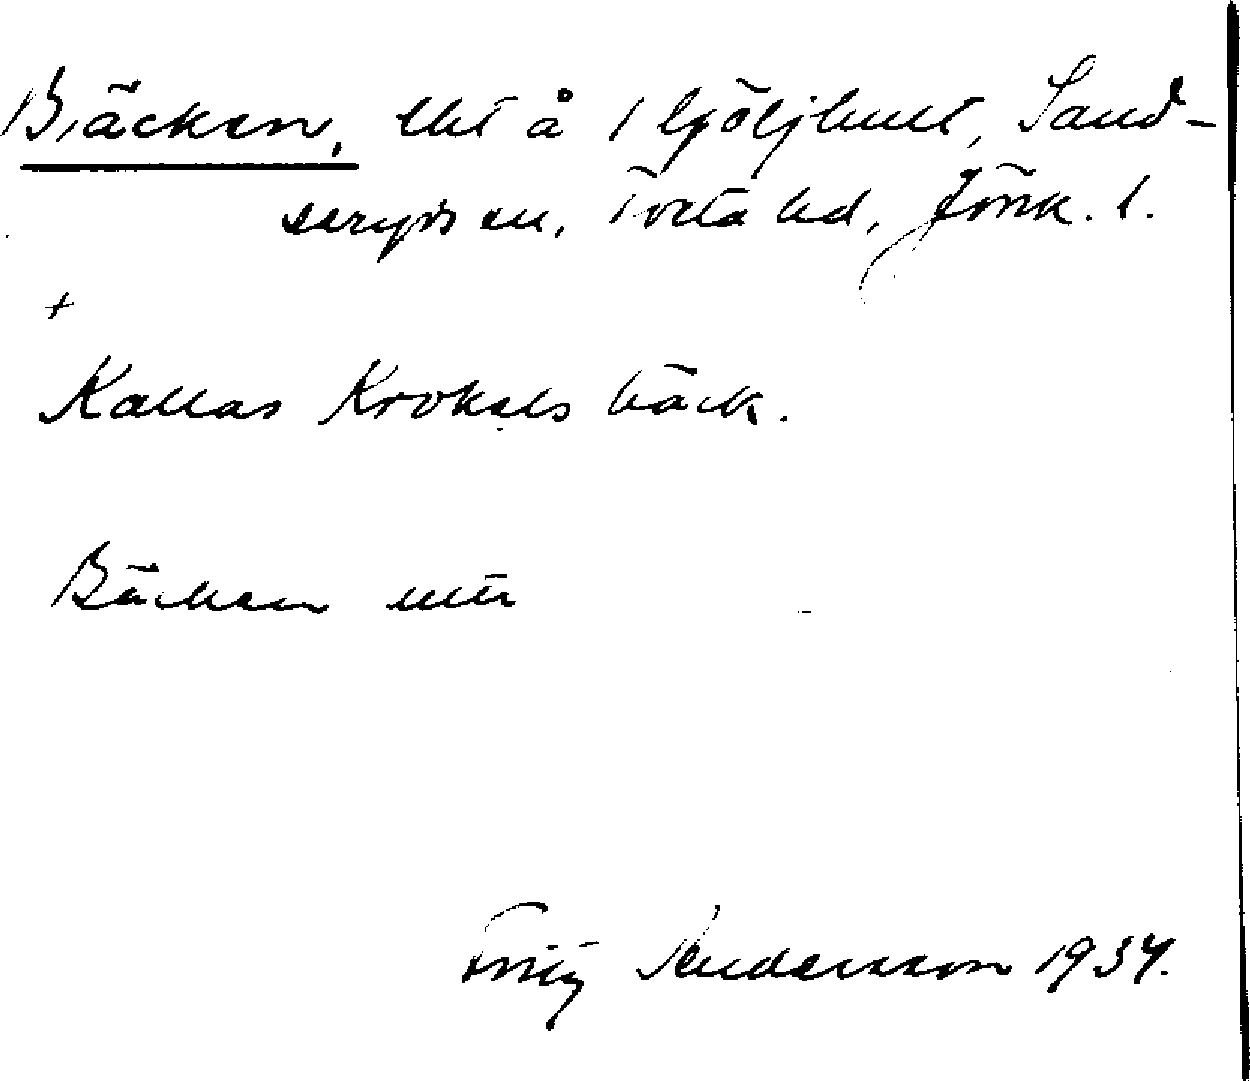 Bäcken, litet å i Ljöljhult, Sand-
seryds sn, Tveta hd, Jönk. l.
+
Kallas Krokals bäck.
Bäcken
Fritz Andersson 1934.